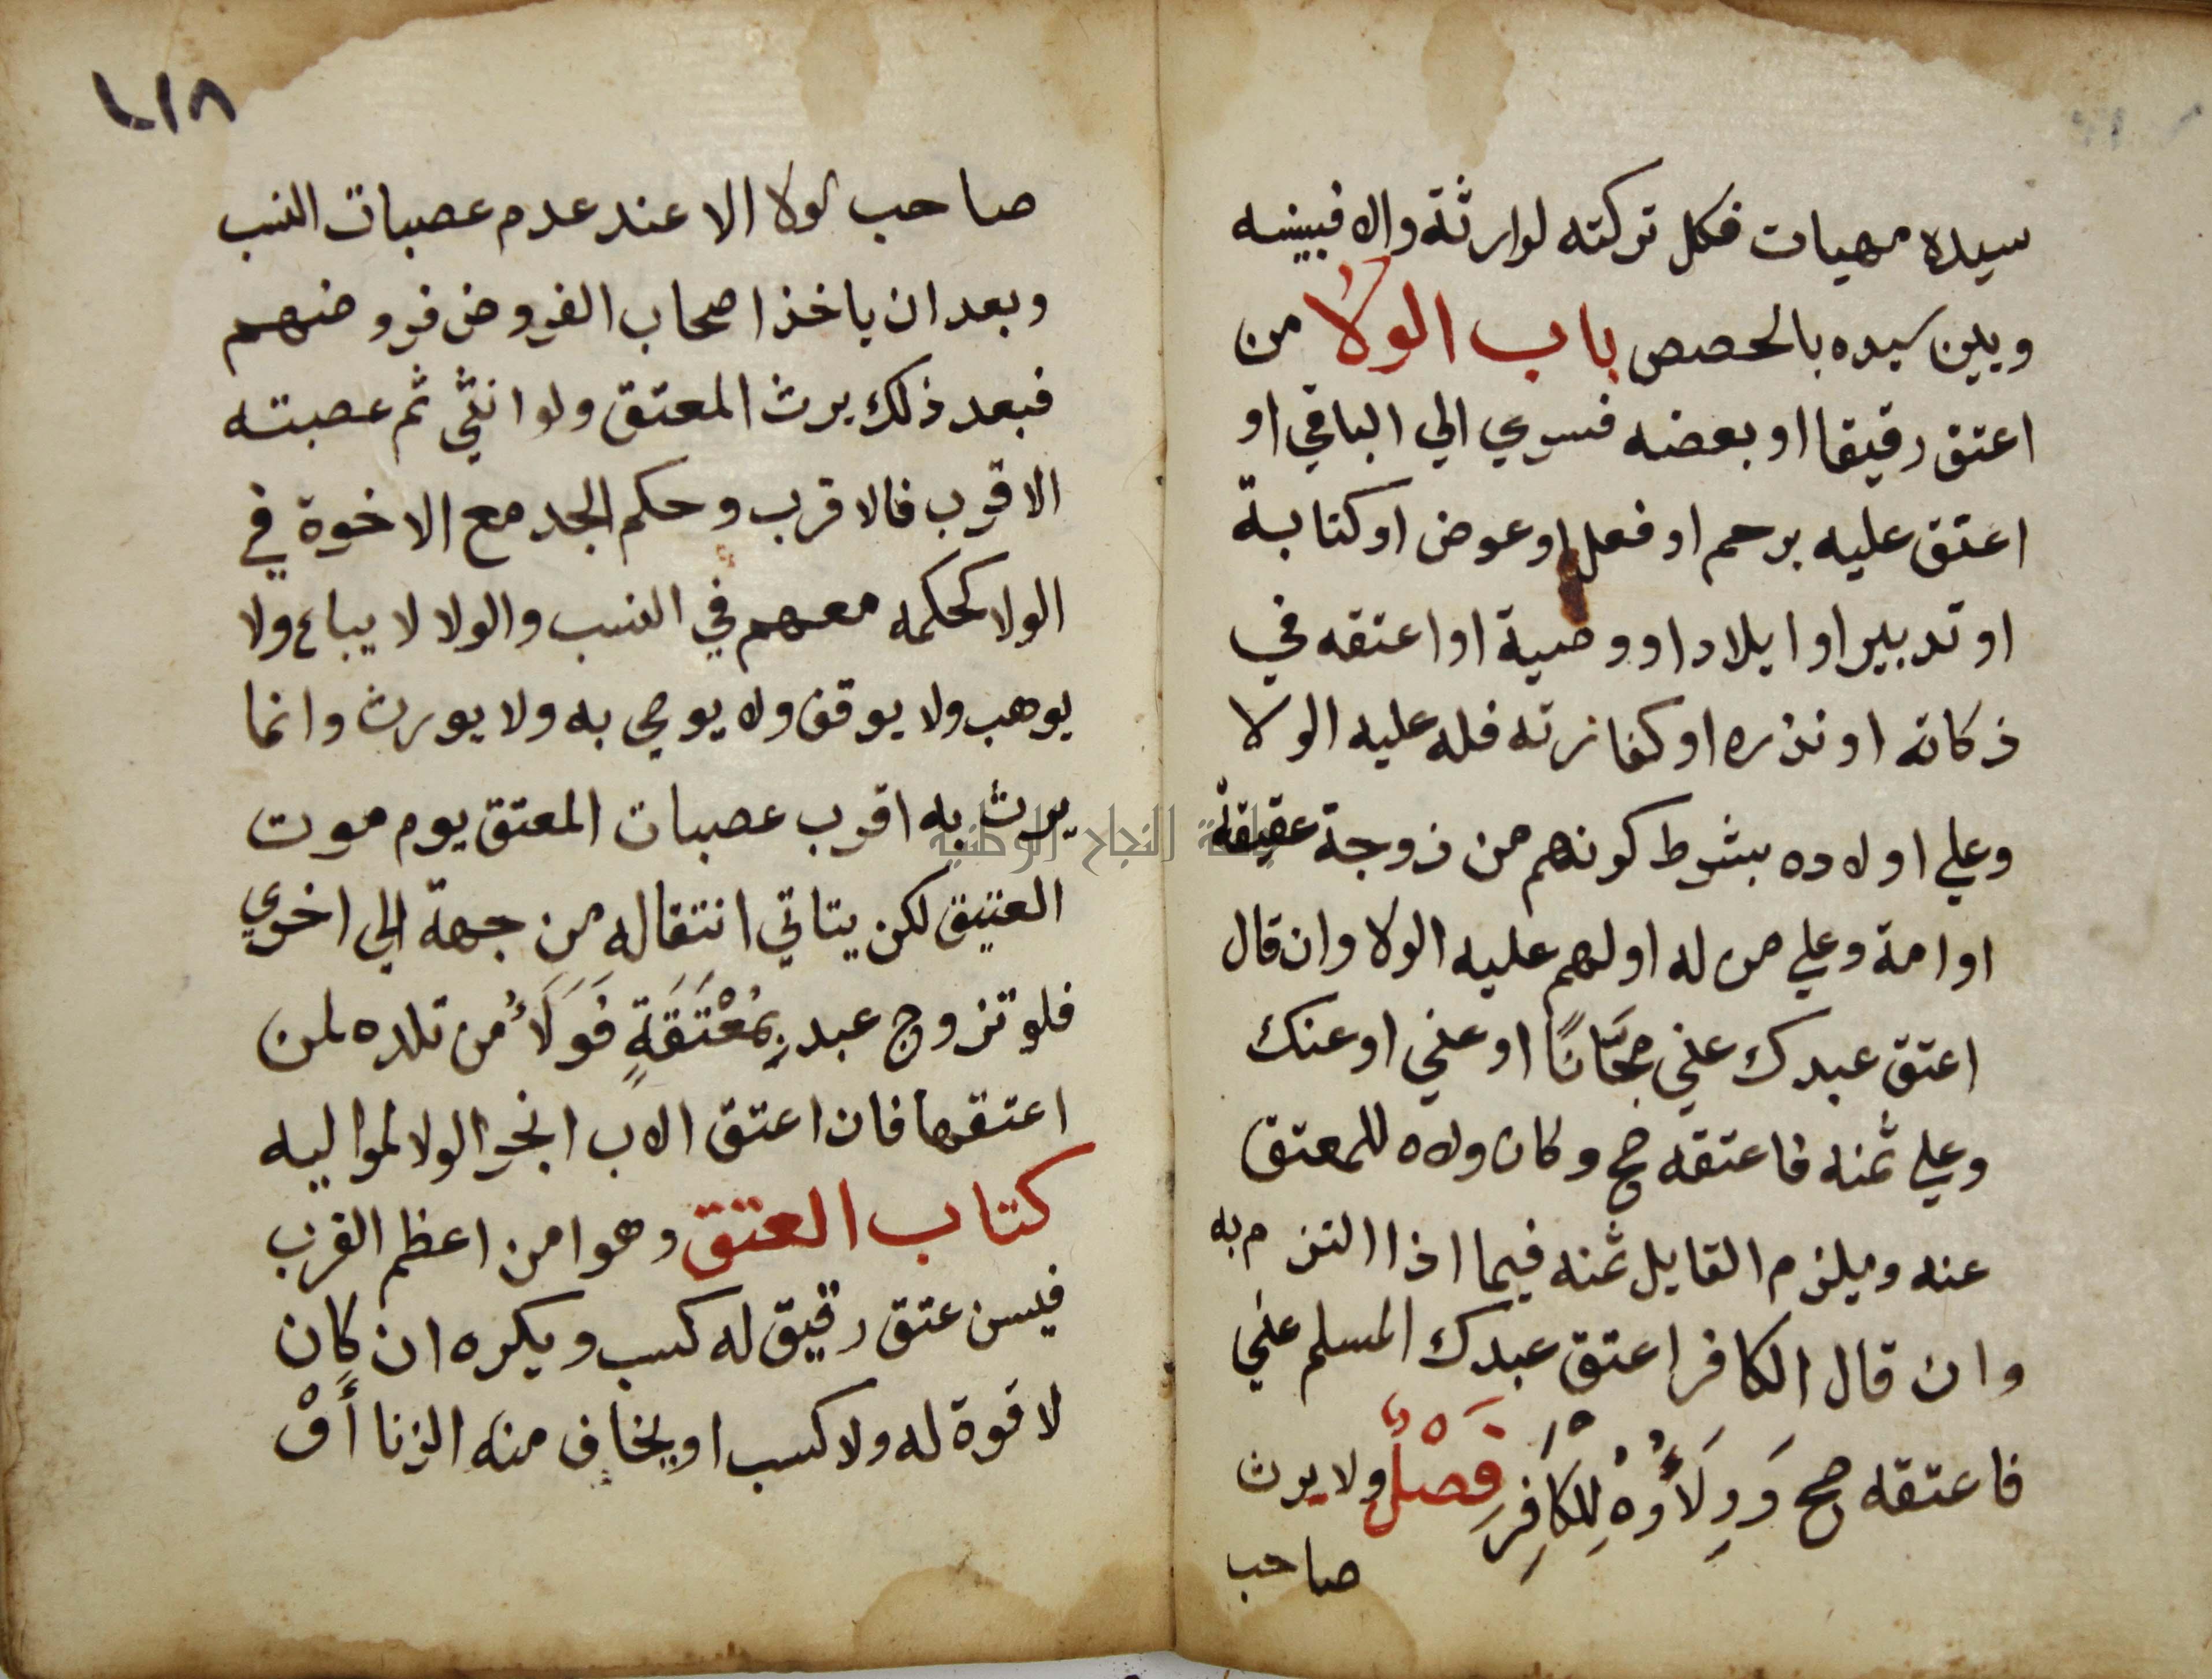 سيده مهيات فكل تركته لوارثة والا فبينه
وبين سيده بالحصص باب الولاء من
اعتق رقيقا او بعضه فسري الي الباقي او
اعتق عليه برحم او فعل او عوض او كتابة
او تدبير او ايلاد او وصية او اعتقه في
ذكاته او نذره او كفارته فله عليه الولا
وعلي اولاده بشرط كونهم من زوجة عتيقة
او امة وعلي من له او لهم عليه الولا وان قال
اعتق عبدك عني مجَّانًا او عني او عنك
وعلي ثمنه فاعتقه صح وكان ولاه للمعتق
عنه ويلزم القايل ثمنه فيما اذا التزم به
وان قال الكافر اعتق عبدك المسلم عني
فاعتقه صح وَوِلَاُؤُهُ لِلْكَافِرِ فَصْلٌ ولا يرث
صاحب
٢١٨
صاحب لولا الا عند عدم عصبات النسب
وبعد ان ياخذ اصحاب الفروض فروضهم
فبعد ذلك يرث المعتق ولو انثي ثم عصبته
الاقرب فالاقرب وحكم الجد مع الاخوة في
الولا كحكمه معهم في النسب والولا لا يباع ولا
يوهب ولا يوقف ولا يوصي به ولا يورث وانما
يرث به اقرب عصبات المعتق يوم موت
العتيق لكن يتاتي انتقاله من جهة الي اخري
فلو تزوج عبد بِمُعْتَقَةٍ فَوَلَاءُ من تلده لمن
اعتقها فان اعتق الاب انجر الولا لمواليه
كتاب العتق وهوا من اعظم القرب
فيسن عتق رقيق له كسب ويكره ان كان
لا قوة له ولا كسب او يخاف منه الزنا أَوْ
جامعة النجاح الوطنية